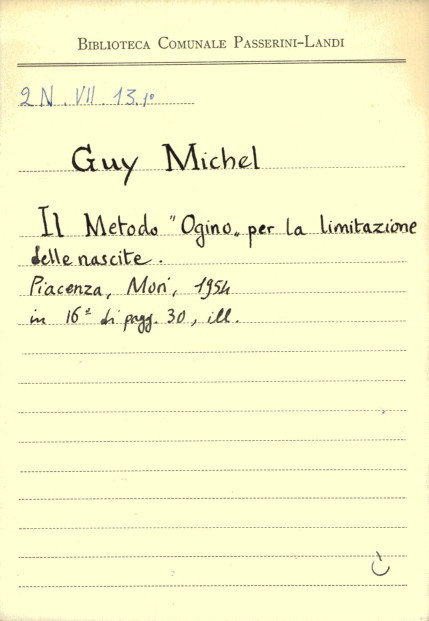 BIBLIOTECA COMUNALE PASSERINI-LANDI
2N. VII 13.1°
Guy Michel
Il Metodo "Ogino„ per la limitazione
delle nascite.
Piacenza, Mori, 1954
in 16° di pagg. 30, ill.